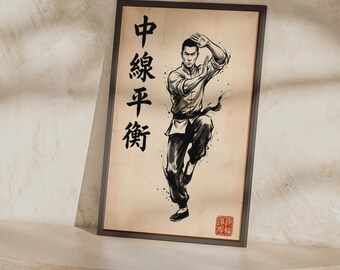 中線平衡